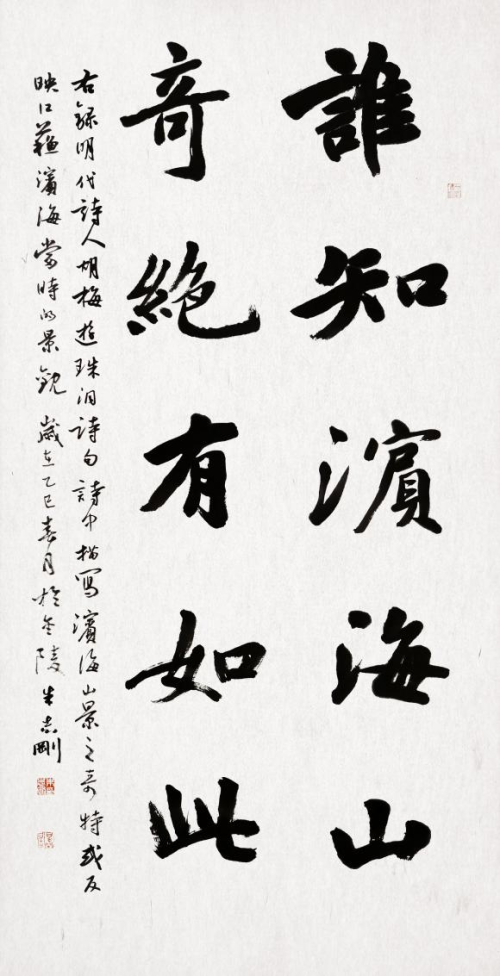 誰知濱海山
奇絶有如此
右録明代詩人胡梅遊珠泪詩句詩中描寫濱海山景之奇特或反
映江蘇濱海當時的景觀歲在乙巳春月於金陵朱志剛